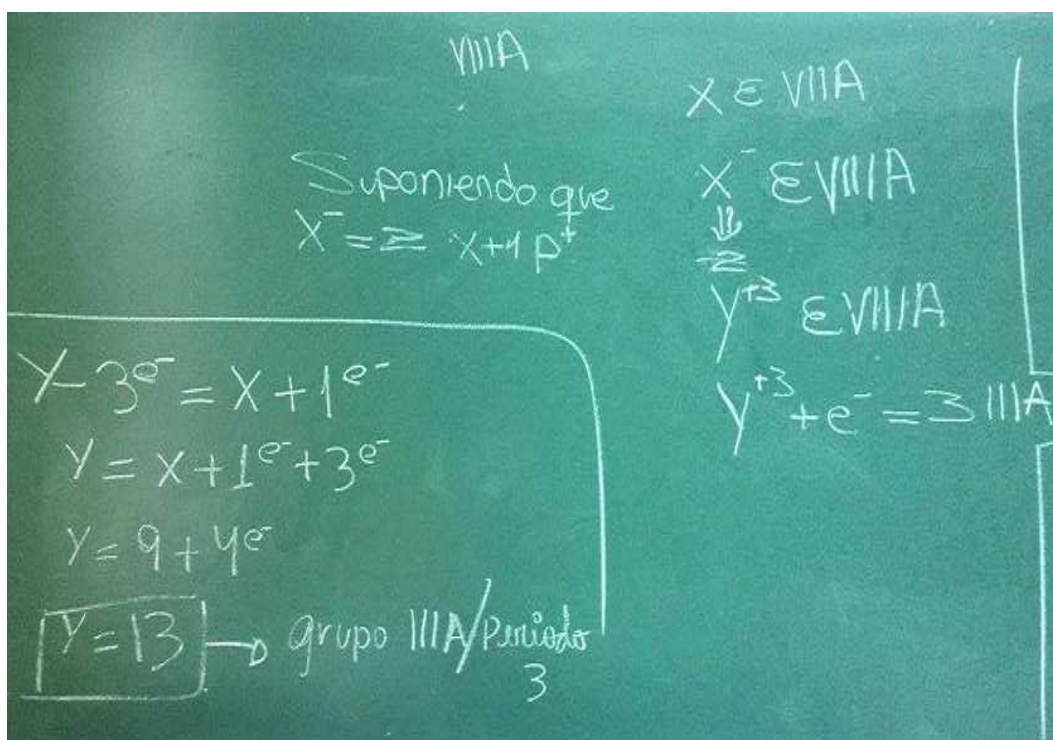 VIIIA
Suponiendo que
X⁻ = Z X+1 p⁺
X ∈ VIIA
X⁻ ∈ VIIIA
⇓
Z
Y⁺³ ∈ VIIIA
Y⁺³ + e⁻ = 3 IIIA
Y - 3e⁻ = X + 1e⁻
Y = X + 1e⁻ + 3e⁻
Y = 9 + 4e⁻
Y = 13 → grupo IIIA/Periodo
3